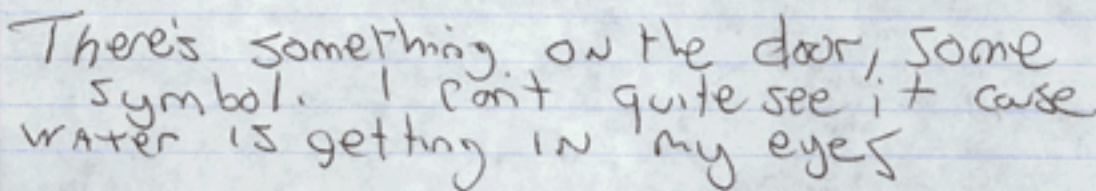 There's something on the door, some
symbol. I can't quite see it cause
water is getting in my eyes